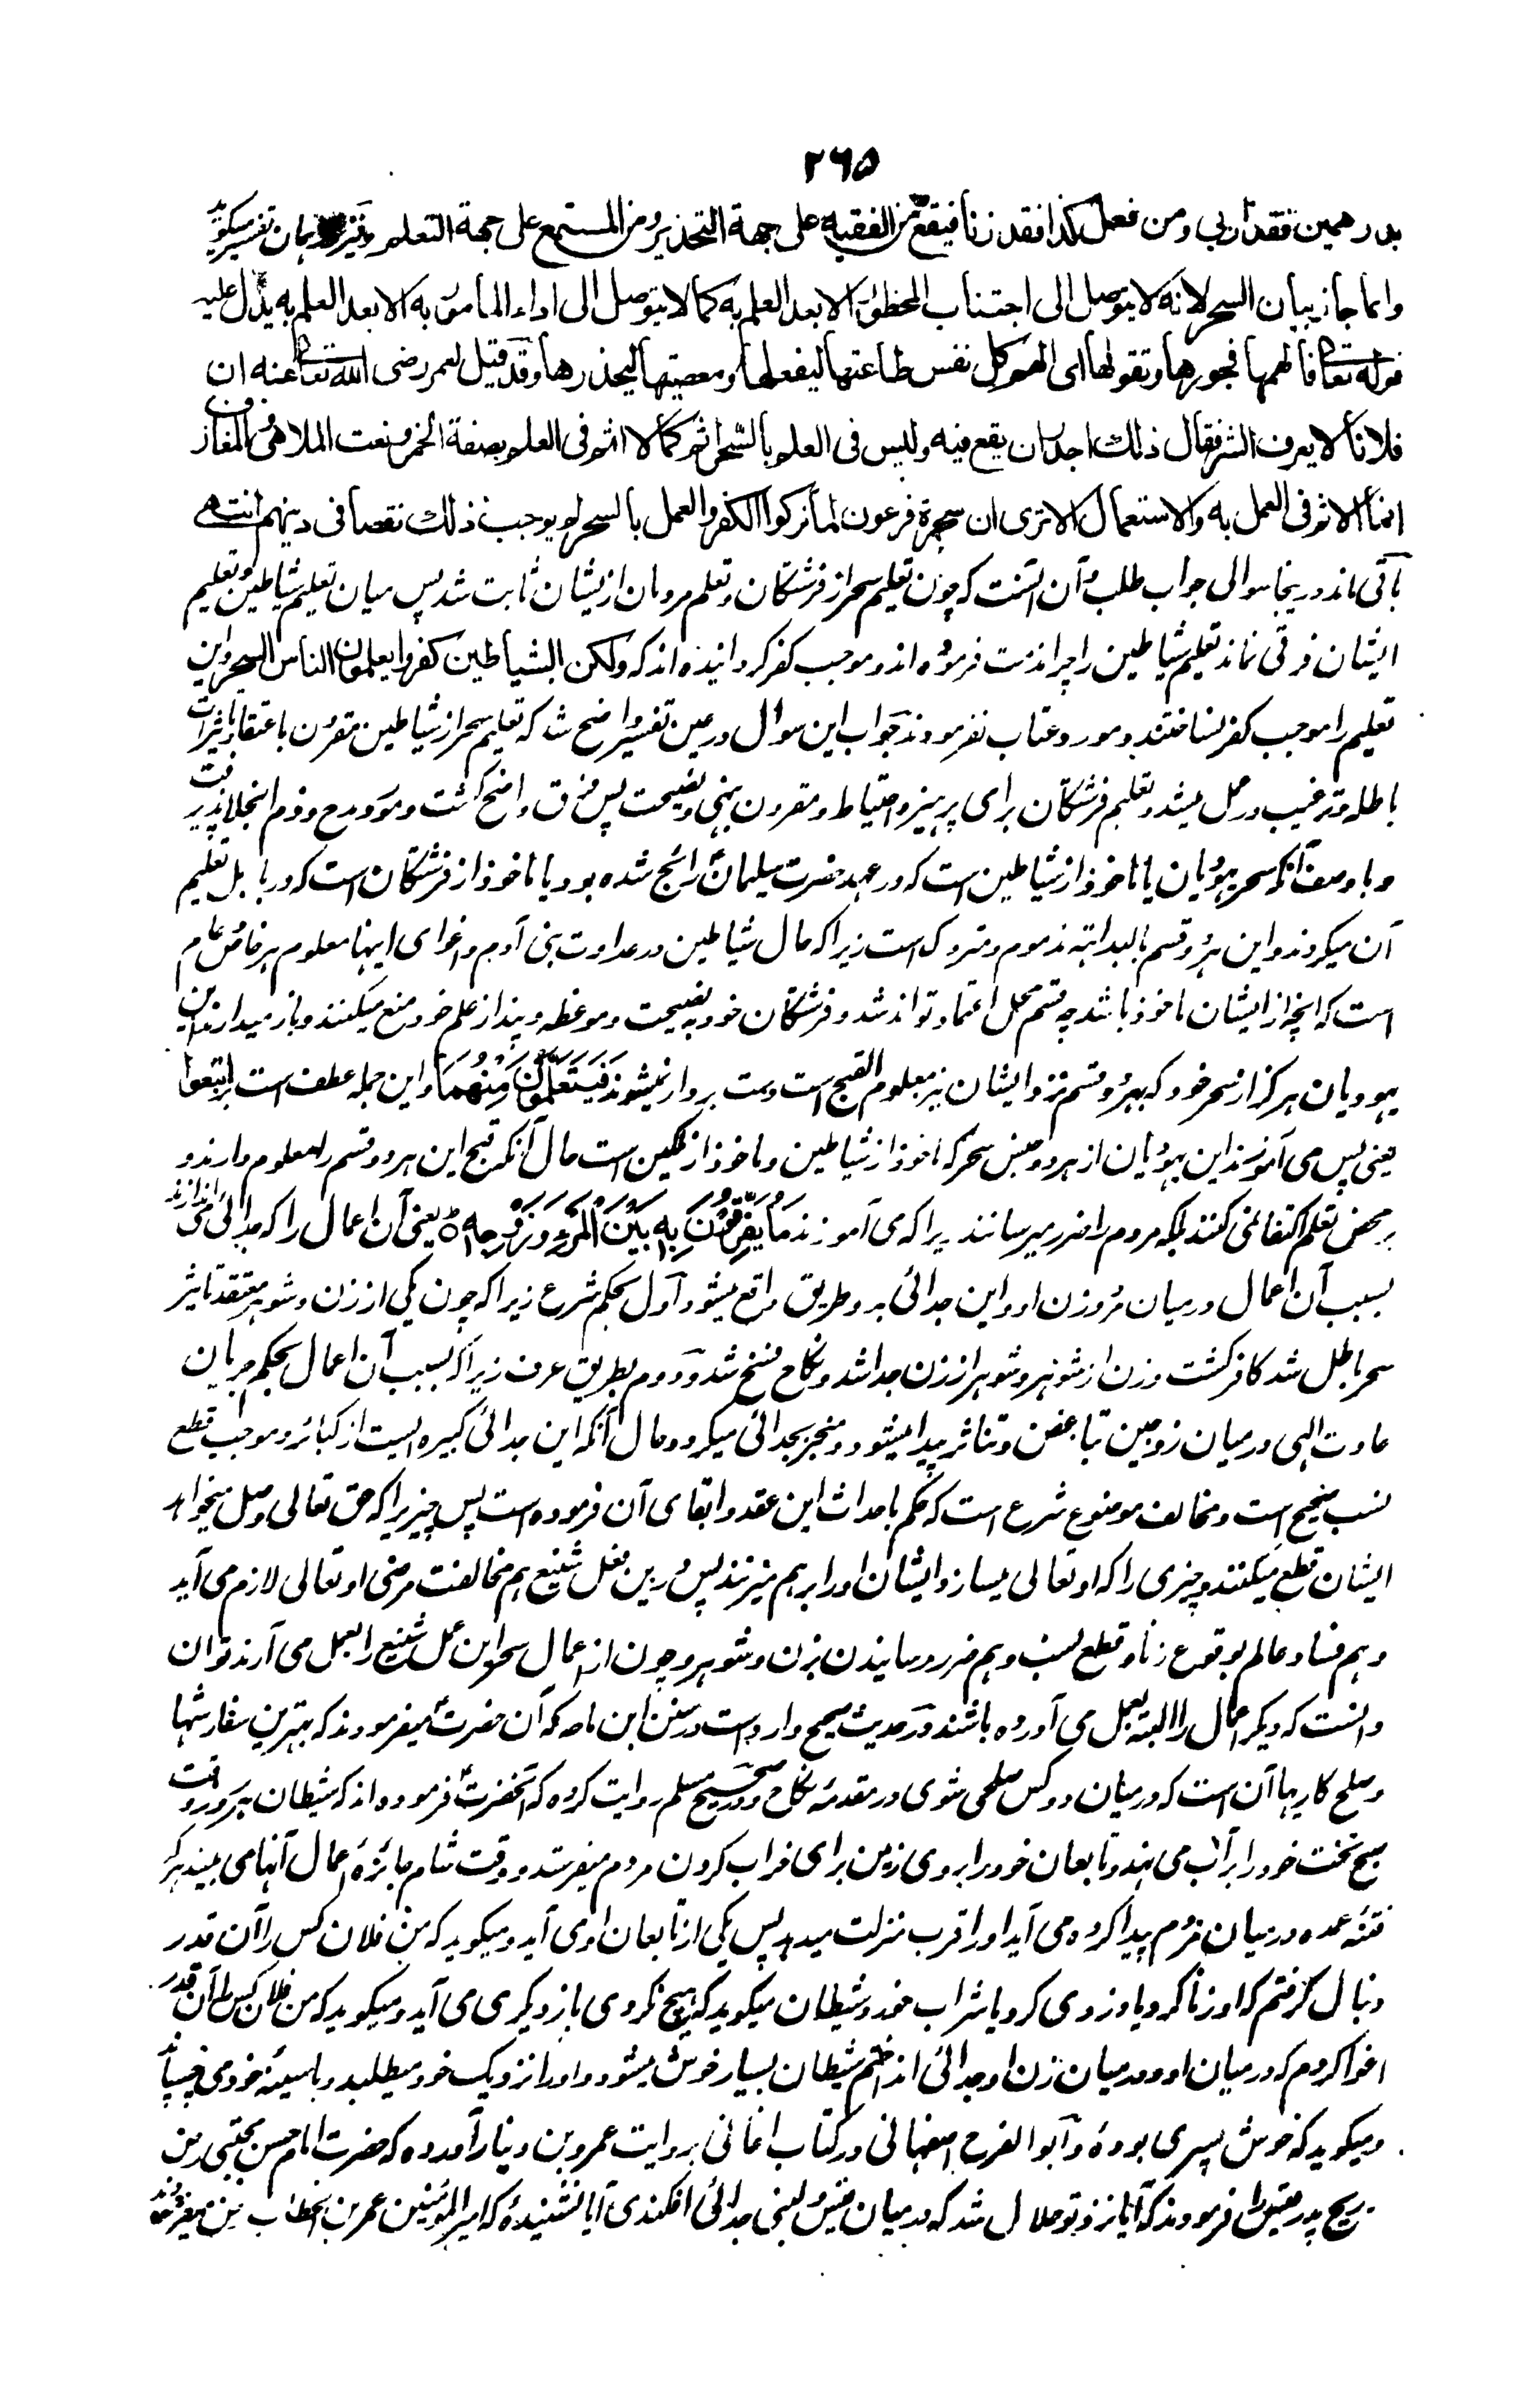 ۲۶۵
بدرهمين فقد اربى ومن فعل كذا فقد زنا فيقع من الفقيه على جهة التحذير ومن المستمع على جهة التعلم و نیز همان تفسیر میگوید
وانما جاز بيان السحر لانه لا يتوصل الى اجتناب المحظور الا بعد العلم به كما لا يتوصل الى اداء المامور به الا بعد العلم به يدل عليه
قوله تعالى فالهمها فجورها وتقواها اى الهم كل نفس طاعتها ليفعلها ومعصيتها ليحذرها وقد قيل لعمر رضى الله تعالى عنه ان
فلانا لا يعرف الشر فقال ذلك اجدر ان يقع فيه وليس فى العلم بالسحر اثم كما لا اثم فى العلم بصفة الخمر ونعت الملاهى والمعازف
انما الاثم فى العمل به والاستعمال الا ترى ان سحرة فرعون لما تركوا الكفر والعمل بالسحر لم يوجب ذلك نقصا فى دينهم انتهى
باقی ماند درینجا سوالی جواب طلب و آن اینست که چون تعلیم سحر از فرشتگان و تعلم مردمان از ایشان ثابت شد پس میان تعلیم شیاطین و تعلیم
ایشان فرقی نماند تعلیم شیاطین را چرا مذمت فرموده اند و موجب کفر گردانیده اند که ولكن الشياطين كفروا يعلمون الناس السحر و این
تعلیم را موجب کفر نساختند و مورد عتاب نفرمودند جواب این سوال در عین تفسیر واضح شد که تعلیم سحر از شیاطین مقرون باعتقاد تاثیرات
باطله و ترغیب در عمل میشد و تعلیم فرشتگان برای پرهیز و احتیاط و مقرون بنهی و نصیحت پس فرق واضح گشت و مورد مدح و ذم انجلا پذیرفت
و باوصف آنکه سحر یهودیان یا ماخوذ از شیاطین است که در عهد حضرت سلیمانؑ رائج شده بود یا ماخوذ از فرشتگان است که در بابل تعلیم
آن میکردند و این هر دو قسم بالبداهته مذموم و متروک است زیرا که حال شیاطین در عداوت بنی آدم و اغوای اینها معلوم هر خاص و عام
است که انچه از ایشان ماخوذ باشد چه قسم محل اعتماد تواند شد و فرشتگان خود به نصیحت و موعظه و پند از علم خود منع میکنند و باز میدارند این
یهودیان هرگز از سحر خود که بهر دو قسم نزد ایشان نیز معلوم القبح است دست بردار نمیشوند فَيَتَعَلَّمُونَ مِنْهُمَا و این جمله عطف است بر اتبعوا
یعنی پس می آموزند این یهودیان از هر دو جنس سحر که ماخوذ از شیاطین و ماخوذ از ملکین است حال آنکه قبح این هر دو قسم را معلوم دارند و
بر محض تعلم اکتفا نمی کنند بلکه مردم را ضرر میرسانند زیرا که می آموزند مَا يُفَرِّقُونَ بِهِ بَيْنَ الْمَرْءِ وَزَوْجِهِ ط یعنی آن اعمال را که جدائی می اندازند
بسبب آن اعمال درمیان مرد و زن او و این جدائی به دو طریق واقع میشود اول بحکم شرع زیرا که چون یکی از زن و شوهر معتقد تاثیر
سحر باطل شد کافر گشت و زن از شوهر و شوهر از زن جدا شد و نکاح فسخ شد و دوم بطریق عرف زیرا که بسبب آن اعمال بحکم جریان
عادت الهی درمیان زوجین تباغض و تنافر پیدا میشود و منجر بجدائی میگردد و حال آنکه این جدائی کبیره ایست از کبائر و موجب قطع
نسب صحیح است و مخالف موضوع شرع است که حکم باحداث این عقد و ابقای آن فرموده است پس چیزیرا که حق تعالی وصل میخواهد
ایشان قطع میکنند و چیزی را که او تعالی میسازد ایشان او را برهم میزنند پس درین فعل شنیع هم مخالفت مرضی او تعالی لازم می آید
و هم فساد عالم بوقوع زنا و قطع نسب و هم ضرر رسانیدن بزن و شوهر و چون از اعمال سحر این عمل شنیع را بعمل می آرند توان
دانست که دیگر اعمال را البته بعمل می آورده باشند و در حدیث صحیح وارد است در سنن ابن ماجه که آن حضرتؐ میفرمودند که بهترین سفارشها
و صلح کاریها آن است که درمیان دو کس صلحی شوی در مقدمه نکاح و در صحیح مسلم روایت کرده که آنحضرتؐ فرموده اند که شیطان هر روز وقت
صبح تخت خود را بر آب می نهد و تابعان خود را بر روی زمین برای خراب کردن مردم میفرستد و وقت شام جائزه اعمال آنها می بیند هر که
فتنه عمده درمیان مردم پیدا کرده می آید او را قرب منزلت میدهد پس یکی از تابعان او می آید و میگوید که من فلان کس را آن قدر
دنبال گرفتم که او زنا کرد یا دزدی کرد یا شراب خورد شیطان میگوید که هیچ نکردی باز دیگری می آید و میگوید که من فلان کس را آن قدر
اغوا کردم که درمیان او و درمیان زن او جدائی انداختم شیطان بسیار خوش میشود و او را نزدیک خود میطلبد و با سینه خود می چسپاند
و میگوید که خوش پسری بودۂ و ابو الفرج اصفهانی در کتاب اغانی بروایت عمرو بن دینار آورده که حضرت امام حسن مجتبی رض
ذریح پدر قیس را فرمودند که آیا نزد تو حلال شد که درمیان قیس و لبنی جدائی افکندی آیا نشنیدۂ که امیر المومنین عمر بن الخطاب رض میفرمودند